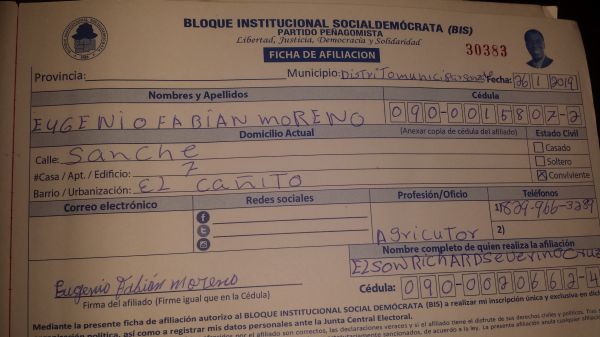 BLOQUE INSTITUCIONAL SOCIALDEMÓCRATA (BIS)
PARTIDO PEÑAGOMISTA
Libertad, Justicia, Democracia y Solidaridad
FICHA DE AFILIACION
30383
Provincia:
Municipio: Fecha: 26/1/2019
Nombres y Apellidos Cédula
EUGENIO FABIAN MORENO 090-0015807-2
Domicilio Actual (Anexar copia de cédula del afiliado) Estado Civil
Calle: Sanche
Casado
#Casa / Apt. / Edificio: 7
Soltero
Barrio / Urbanización: EL CAÑITO
Conviviente
Correo electrónico Redes sociales Profesión/Oficio Teléfonos
1) 829-966-3289
AgRicuTOR 2)
Nombre completo de quien realiza la afiliación
ELSON RICHARD SEVERINO CRUZ
Eugenio Fabián Moreno
Cédula: 090-0020662-4
Firma del afiliado (Firme igual que en la Cédula)
Mediante la presente ficha de afiliación autorizo al BLOQUE INSTITUCIONAL SOCIAL DEMÓCRATA (BIS) a realizar mi inscripción única y exclusiva en
organización política, así como a registrar mis datos personales ante la Junta Central Electoral.